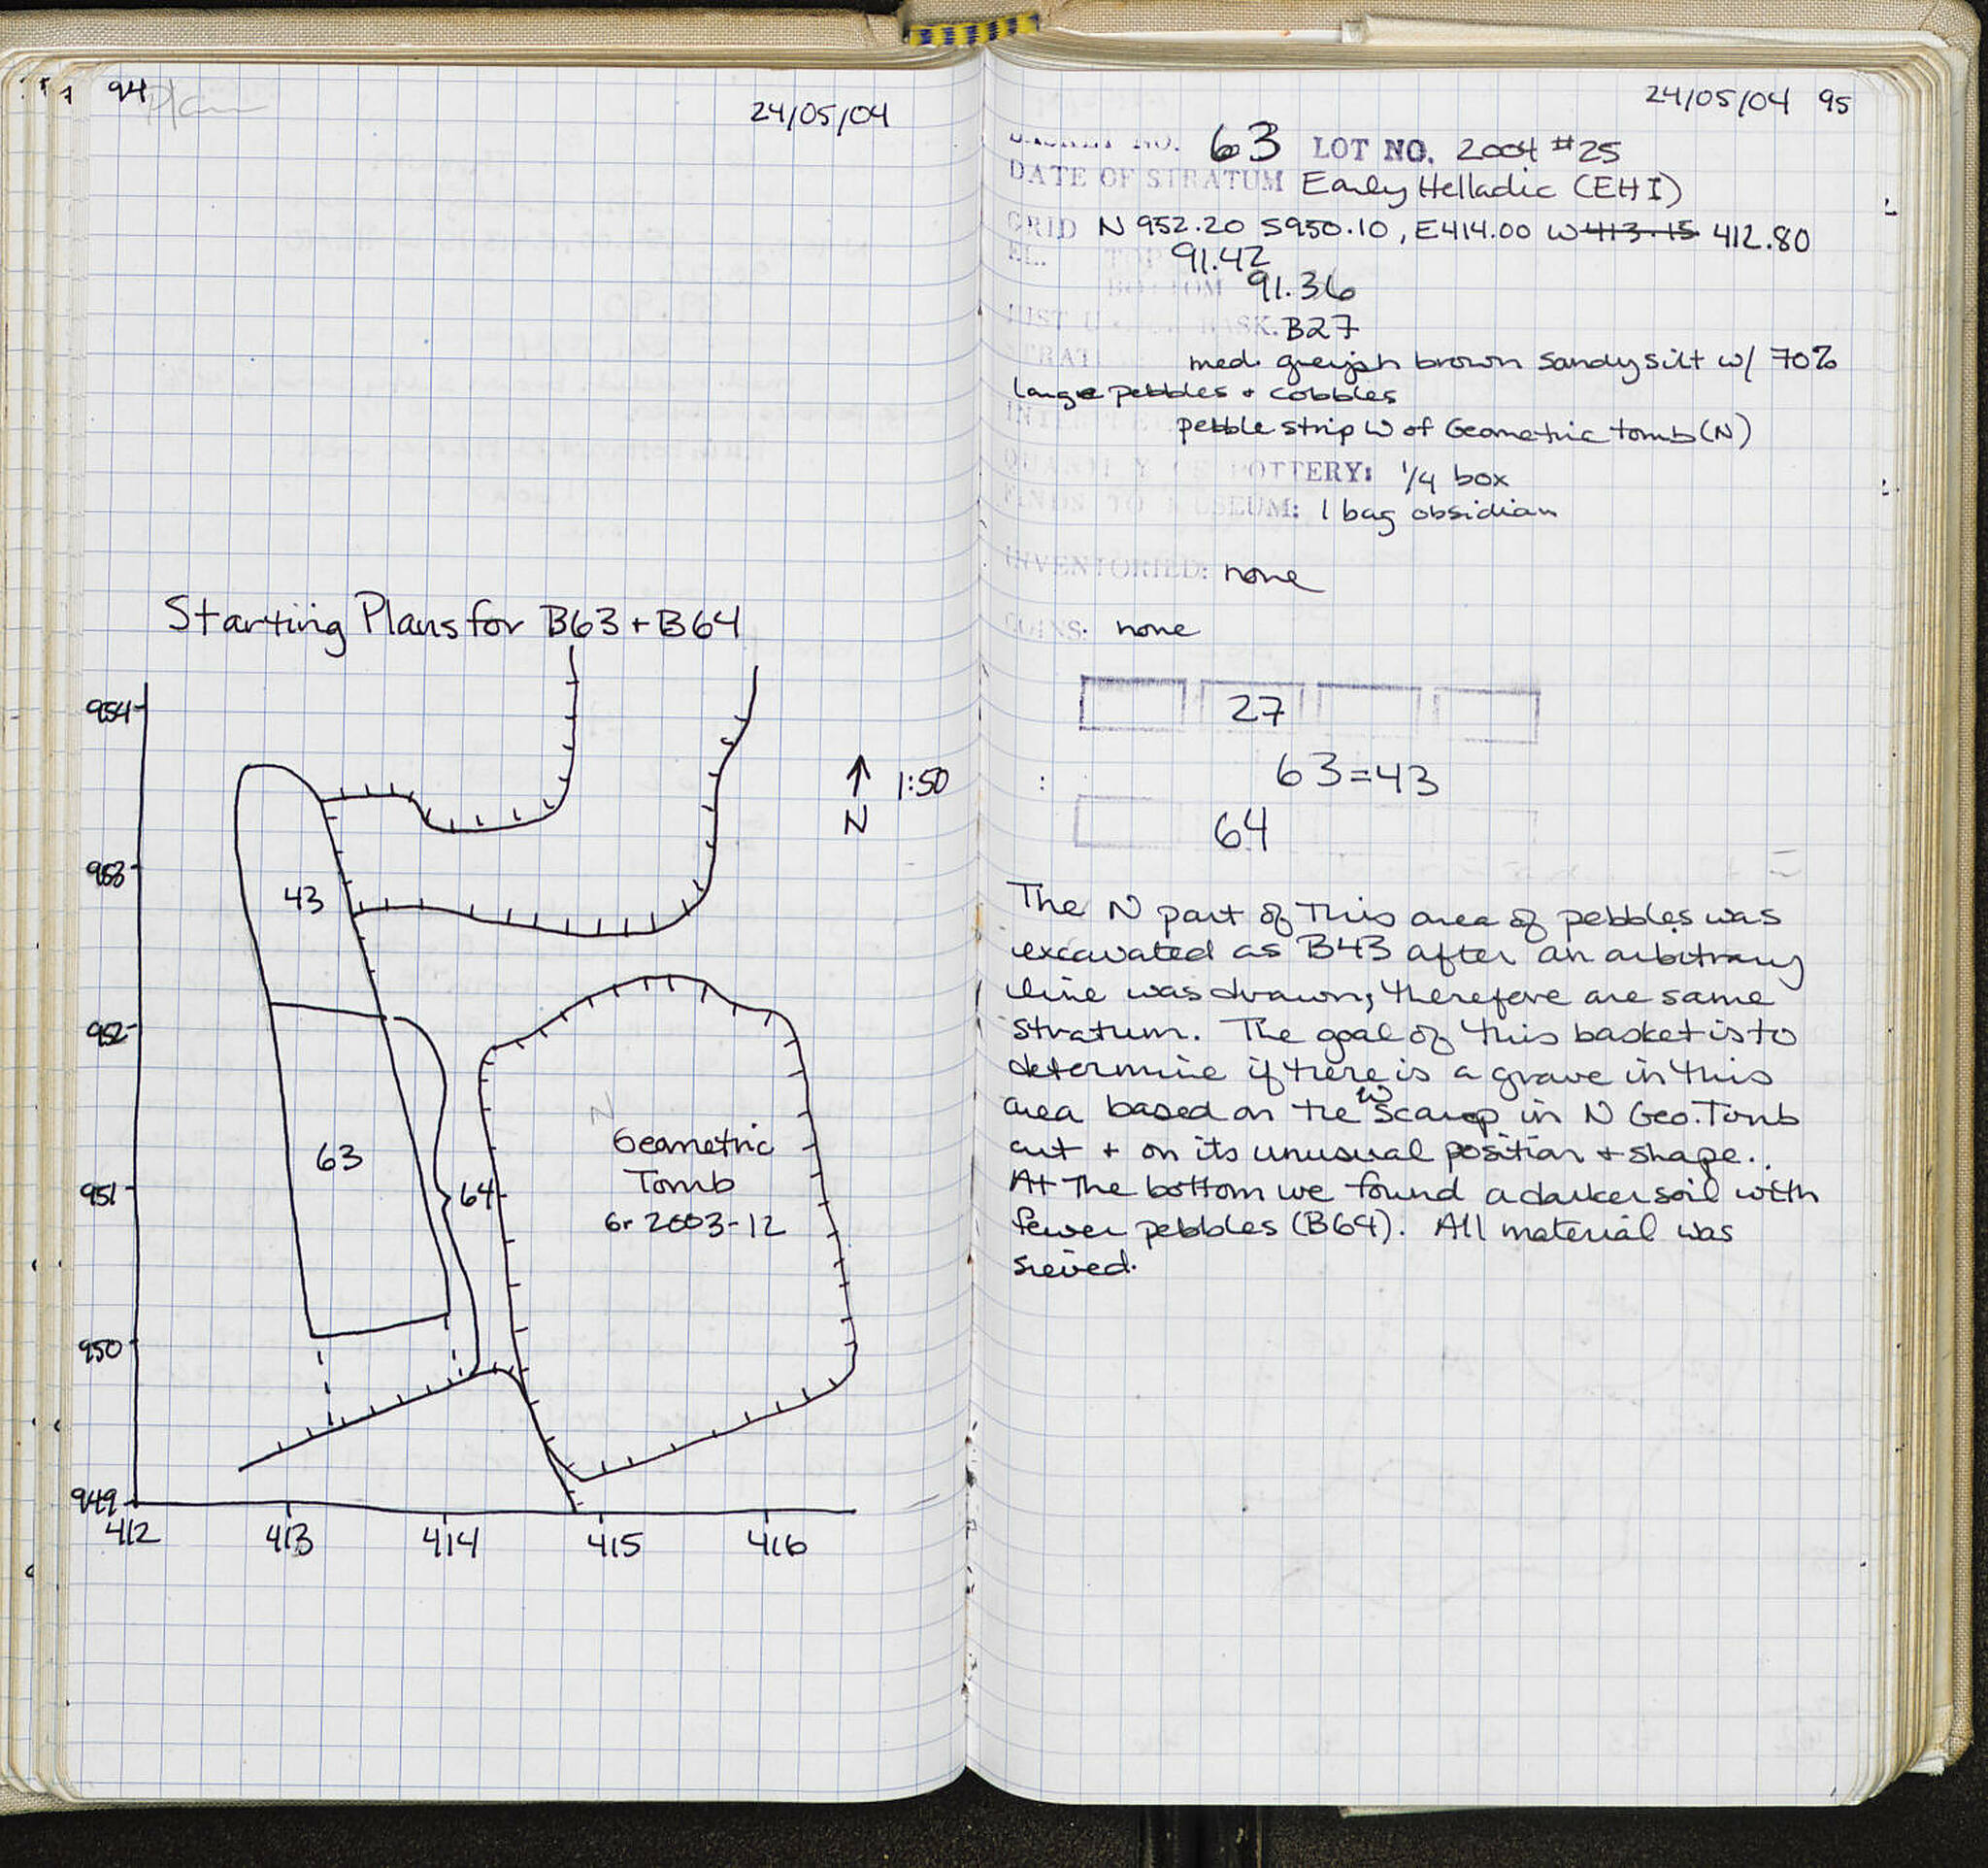 94
Plan
24/05/04
Starting Plans for B63 + B64
954
953
952
951
950
949
412
413
414
415
416
43
63
64
Geometric
Tomb
Gr 2003-12
↑
N
1:50
24/05/04 95
BASKET NO. 63 LOT NO. 2004 #25
DATE OF STRATUM Early Helladic (EH I)
GRID N 952.20 S950.10, E414.00 W 413.15 412.80
EL. TOP 91.42
BOTTOM 91.36
JUST U BASK. B27
STRAT med. greyish brown sandy silt w/ 70%
large pebbles + cobbles
pebble strip W of Geometric tomb (N)
QUANTITY OF POTTERY: 1/4 box
FINDS TO MUSEUM: 1 bag obsidian
INVENTORIED: none
COINS: none
27
63=43
64
The N part of this area of pebbles was
excavated as B43 after an arbitrary
line was drawn; therefore are same
stratum. The goal of this basket is to
determine if there is a grave in this
area based on the W scarp in N Geo. Tomb
cut + on its unusual position + shape.
At the bottom we found a darker soil with
fewer pebbles (B64). All material was
sieved.